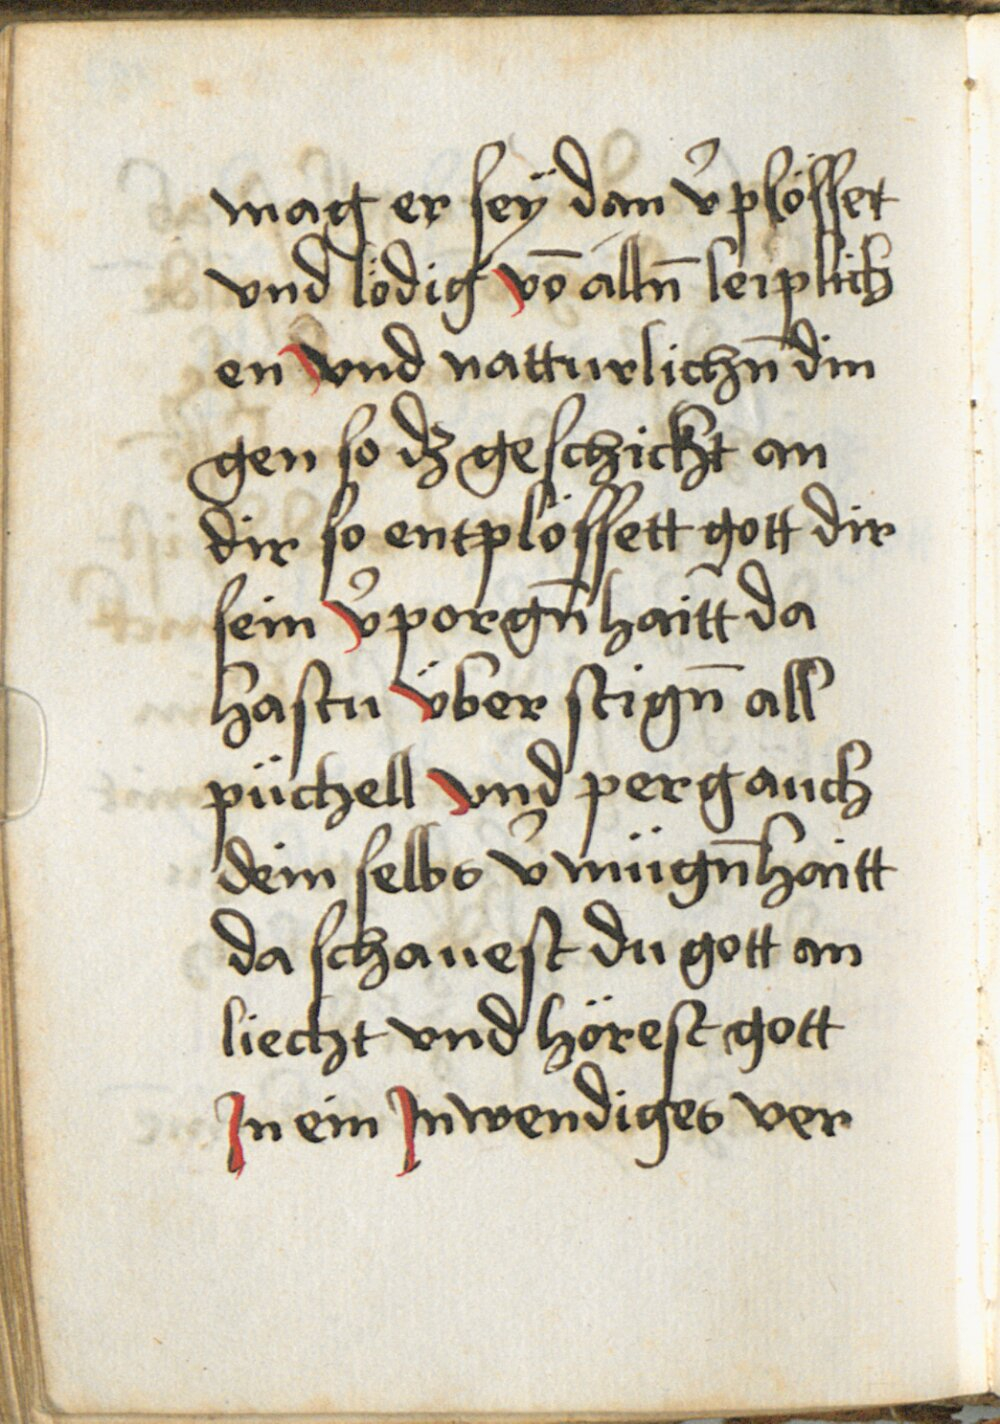 mag er seÿ dan v̉plösset
vnd lödig vō alln̄ leiplich
en vnd natturlichn̄ din
gen so dz geschickt an
dir so entplössett gott dir
sein v̉porgn̄haitt da
hastu über stign̄ all
püchell vnd perg auch
dein selbs v̉mügn̄haitt
da schauest du gott an
liecht vnd hörest gott
In ein Inwendiges ver